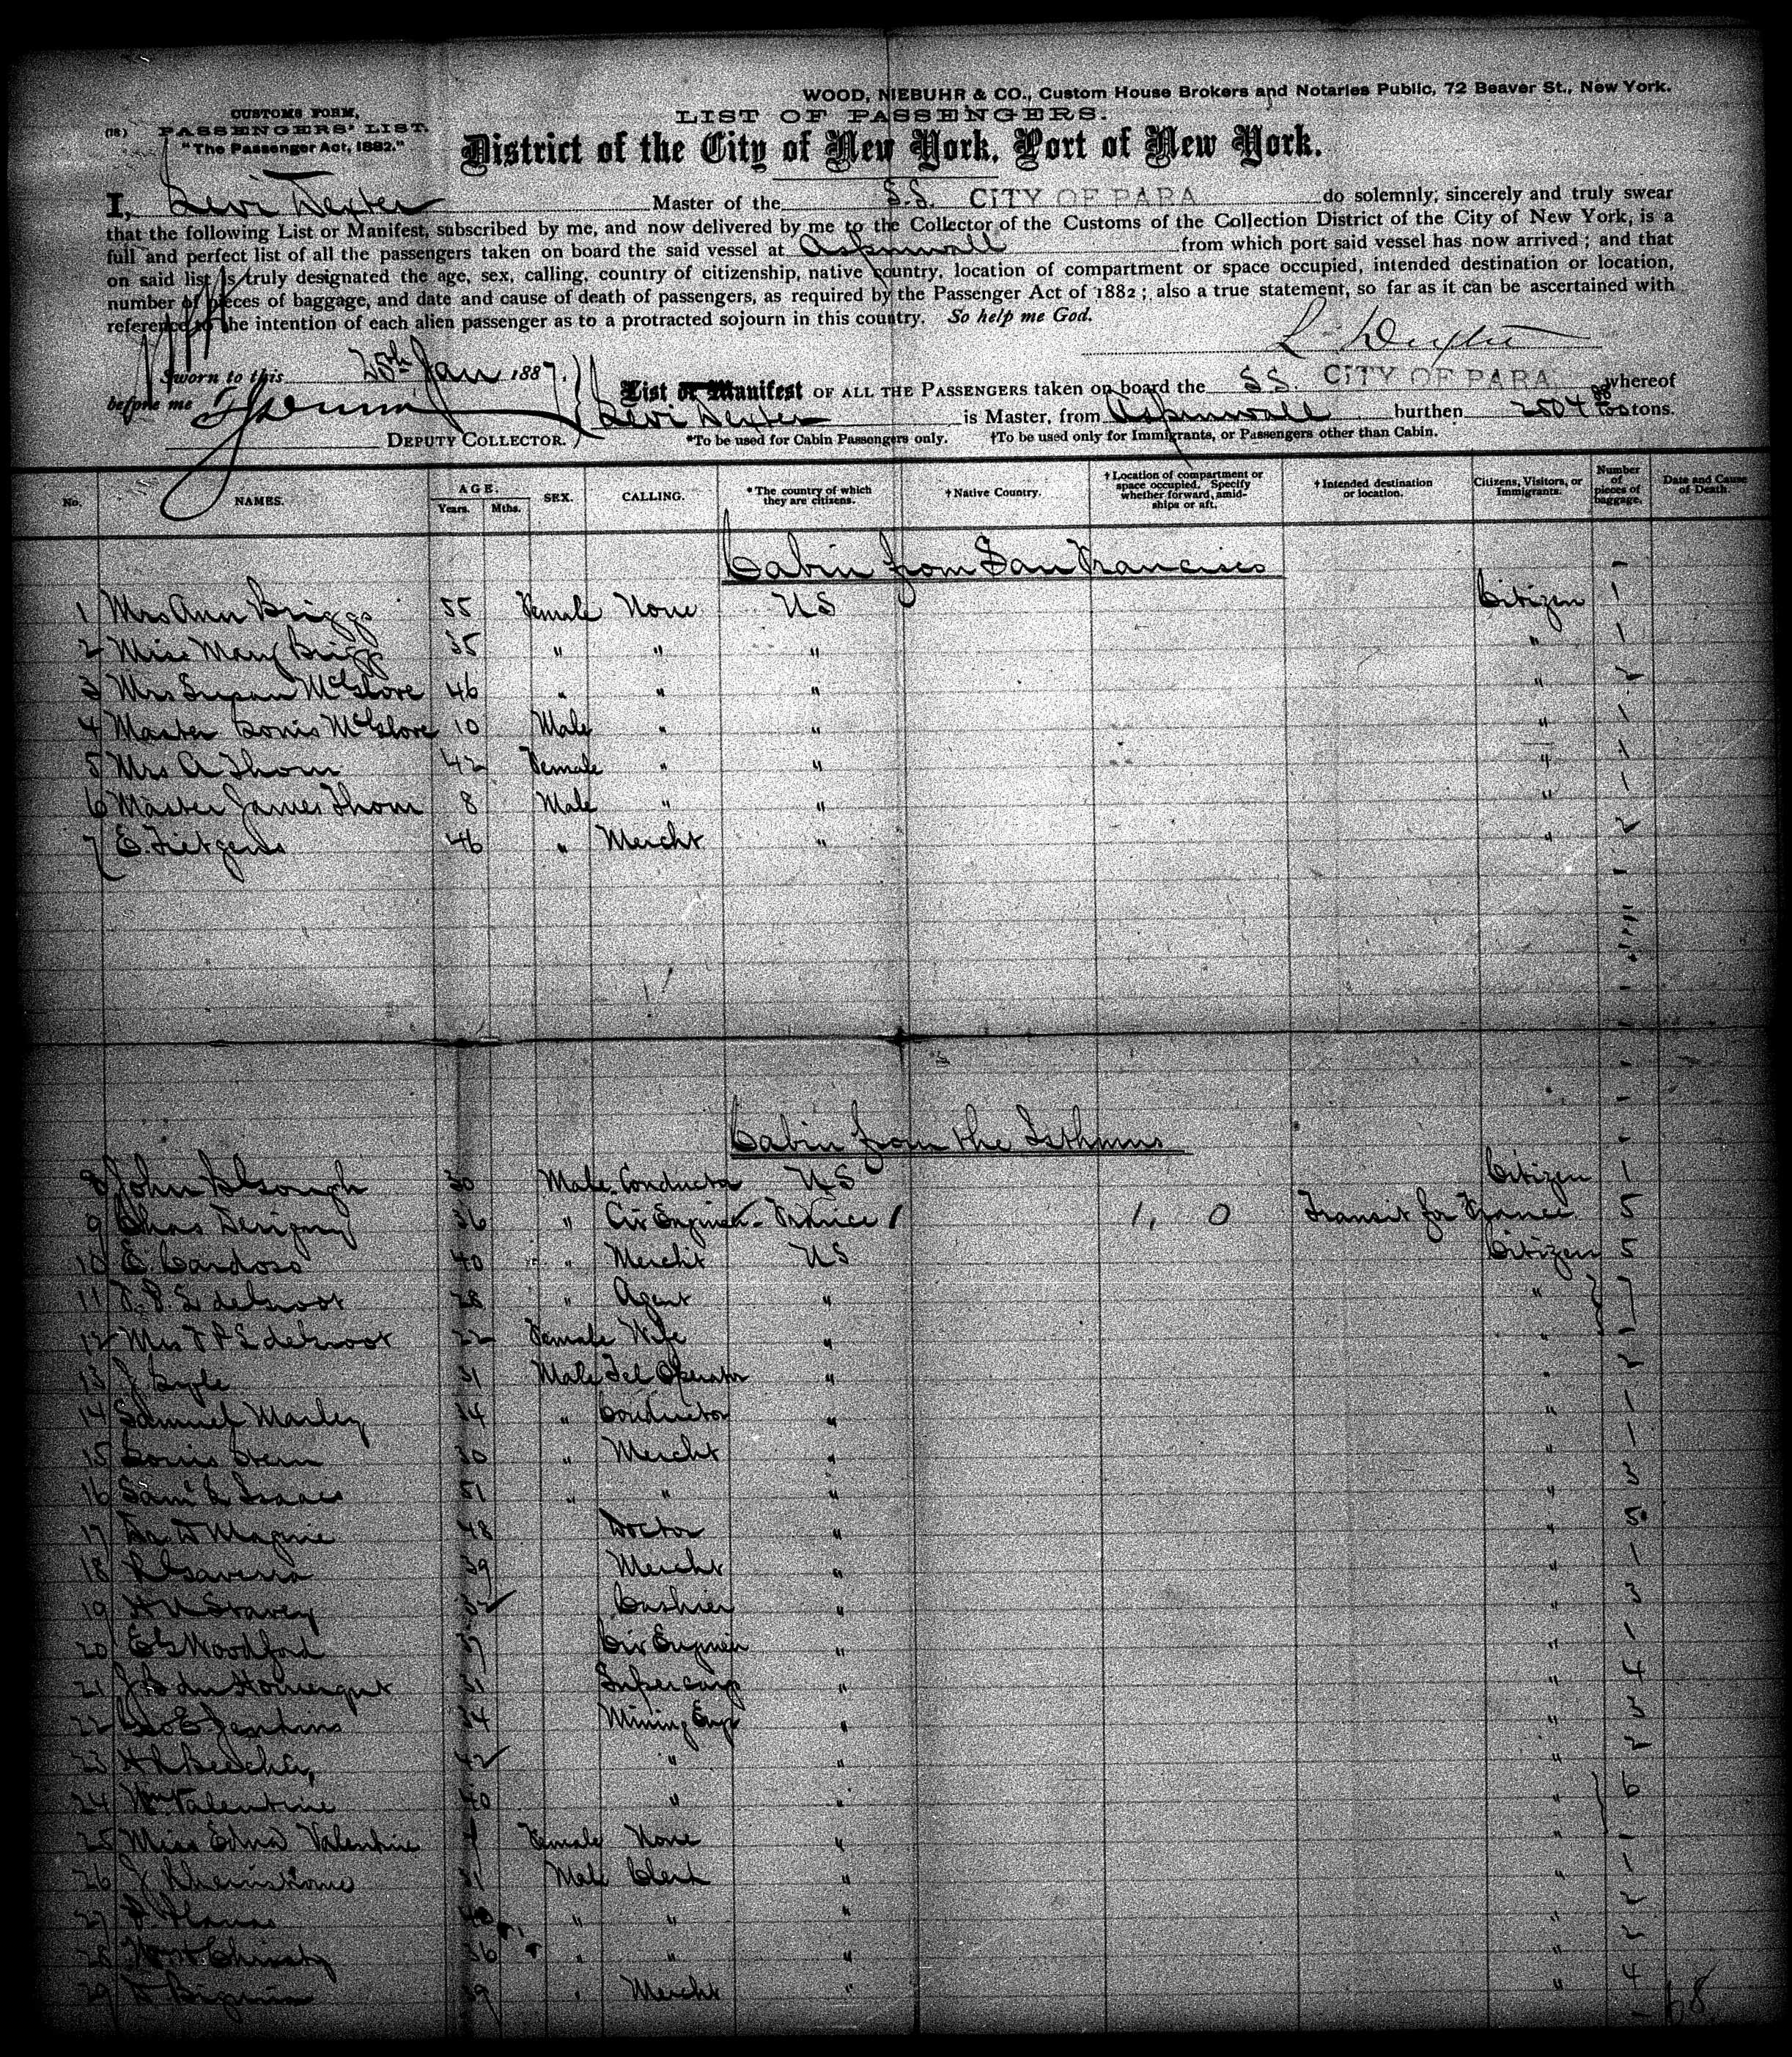 WOOD, NIEBUHR & CO., Custom House Brokers and Notaries Public, 72 Beaver St., New York.
CUSTOMS FORM,
(18) PASSENGERS' LIST.
"The Passenger Act, 1882."
LIST OF PASSENGERS.
District of the City of New York, Port of New York.
I, Levi Dexter Master of the S.S. CITY OF PARA do solemnly, sincerely and truly swear
that the following List or Manifest, subscribed by me, and now delivered by me to the Collector of the Customs of the Collection District of the City of New York, is a
full and perfect list of all the passengers taken on board the said vessel at Aspinwall from which port said vessel has now arrived; and that
on said list is truly designated the age, sex, calling, country of citizenship, native country, location of compartment or space occupied, intended destination or location,
number of pieces of baggage, and date and cause of death of passengers, as required by the Passenger Act of 1882; also a true statement, so far as it can be ascertained with
reference to the intention of each alien passenger as to a protracted sojourn in this country. So help me God.
L Dexter
Sworn to this 25th Jan 1887.
before me
DEPUTY COLLECTOR.
List or Manifest OF ALL THE PASSENGERS taken on board the SS. CITY OF PARA whereof
Levi Dexter is Master, from Aspinwall burthen 2504 tons.
*To be used for Cabin Passengers only. †To be used only for Immigrants, or Passengers other than Cabin.
No. NAMES. AGE. Years. Mths. SEX. CALLING. *The country of which they are citizens. †Native Country. †Location of compartment or space occupied. Specify whether forward, amidships or aft. †Intended destination or location. Citizens, Visitors, or Immigrants. Number of pieces of baggage. Date and Cause of Death.
Cabin from San Francisco
1 Mrs Ann Briggs 55 Female None US Citizen 1
2 Miss Mary Briggs 35 " " " " 1
3 Mrs Susan McGlove 46 " " " " 2
4 Master Louis McGlove 10 Male " " " 1
5 Mrs A Thom 42 Female " " " 1
6 Master James Thom 8 Male " " " 1
7 E. Fietgens 46 " Mercht " " 2
Cabin from the Isthmus
8 John 30 Male Conductor US Citizen 1
9 Chas Derigny 36 " Civ Engineer France 1, 0 Transit for France 5
10 E. Cardoso 40 " Mercht US Citizen 5
11 28 " Agent " " 7
12 Mrs 22 Female Wife " " -
13 J 31 Male Tel Operator " " 2
14 Samuel Marley 34 " Conductor " " 1
15 Louis Stern 30 " Mercht " " 1
16 Saml L Isaacs 51 " " " " 3
17 48 Doctor " " 5
18 39 Mercht " " 1
19 32 Cashier " " 3
20 Woodford 37 Civ Engineer " " 1
21 31 Supercargo " " 4
22 Geo E Jenkins 34 Mining Engr " " 3
23 42 " " " 2
24 Wm Valentine 40 " " " 6
25 Miss Edna Valentine Female None " " -
26 J 31 Male Clerk " " 1
27 40 " " " " 2
28 Christy 36 " " " " 2
29 39 " Mercht " " 4
68